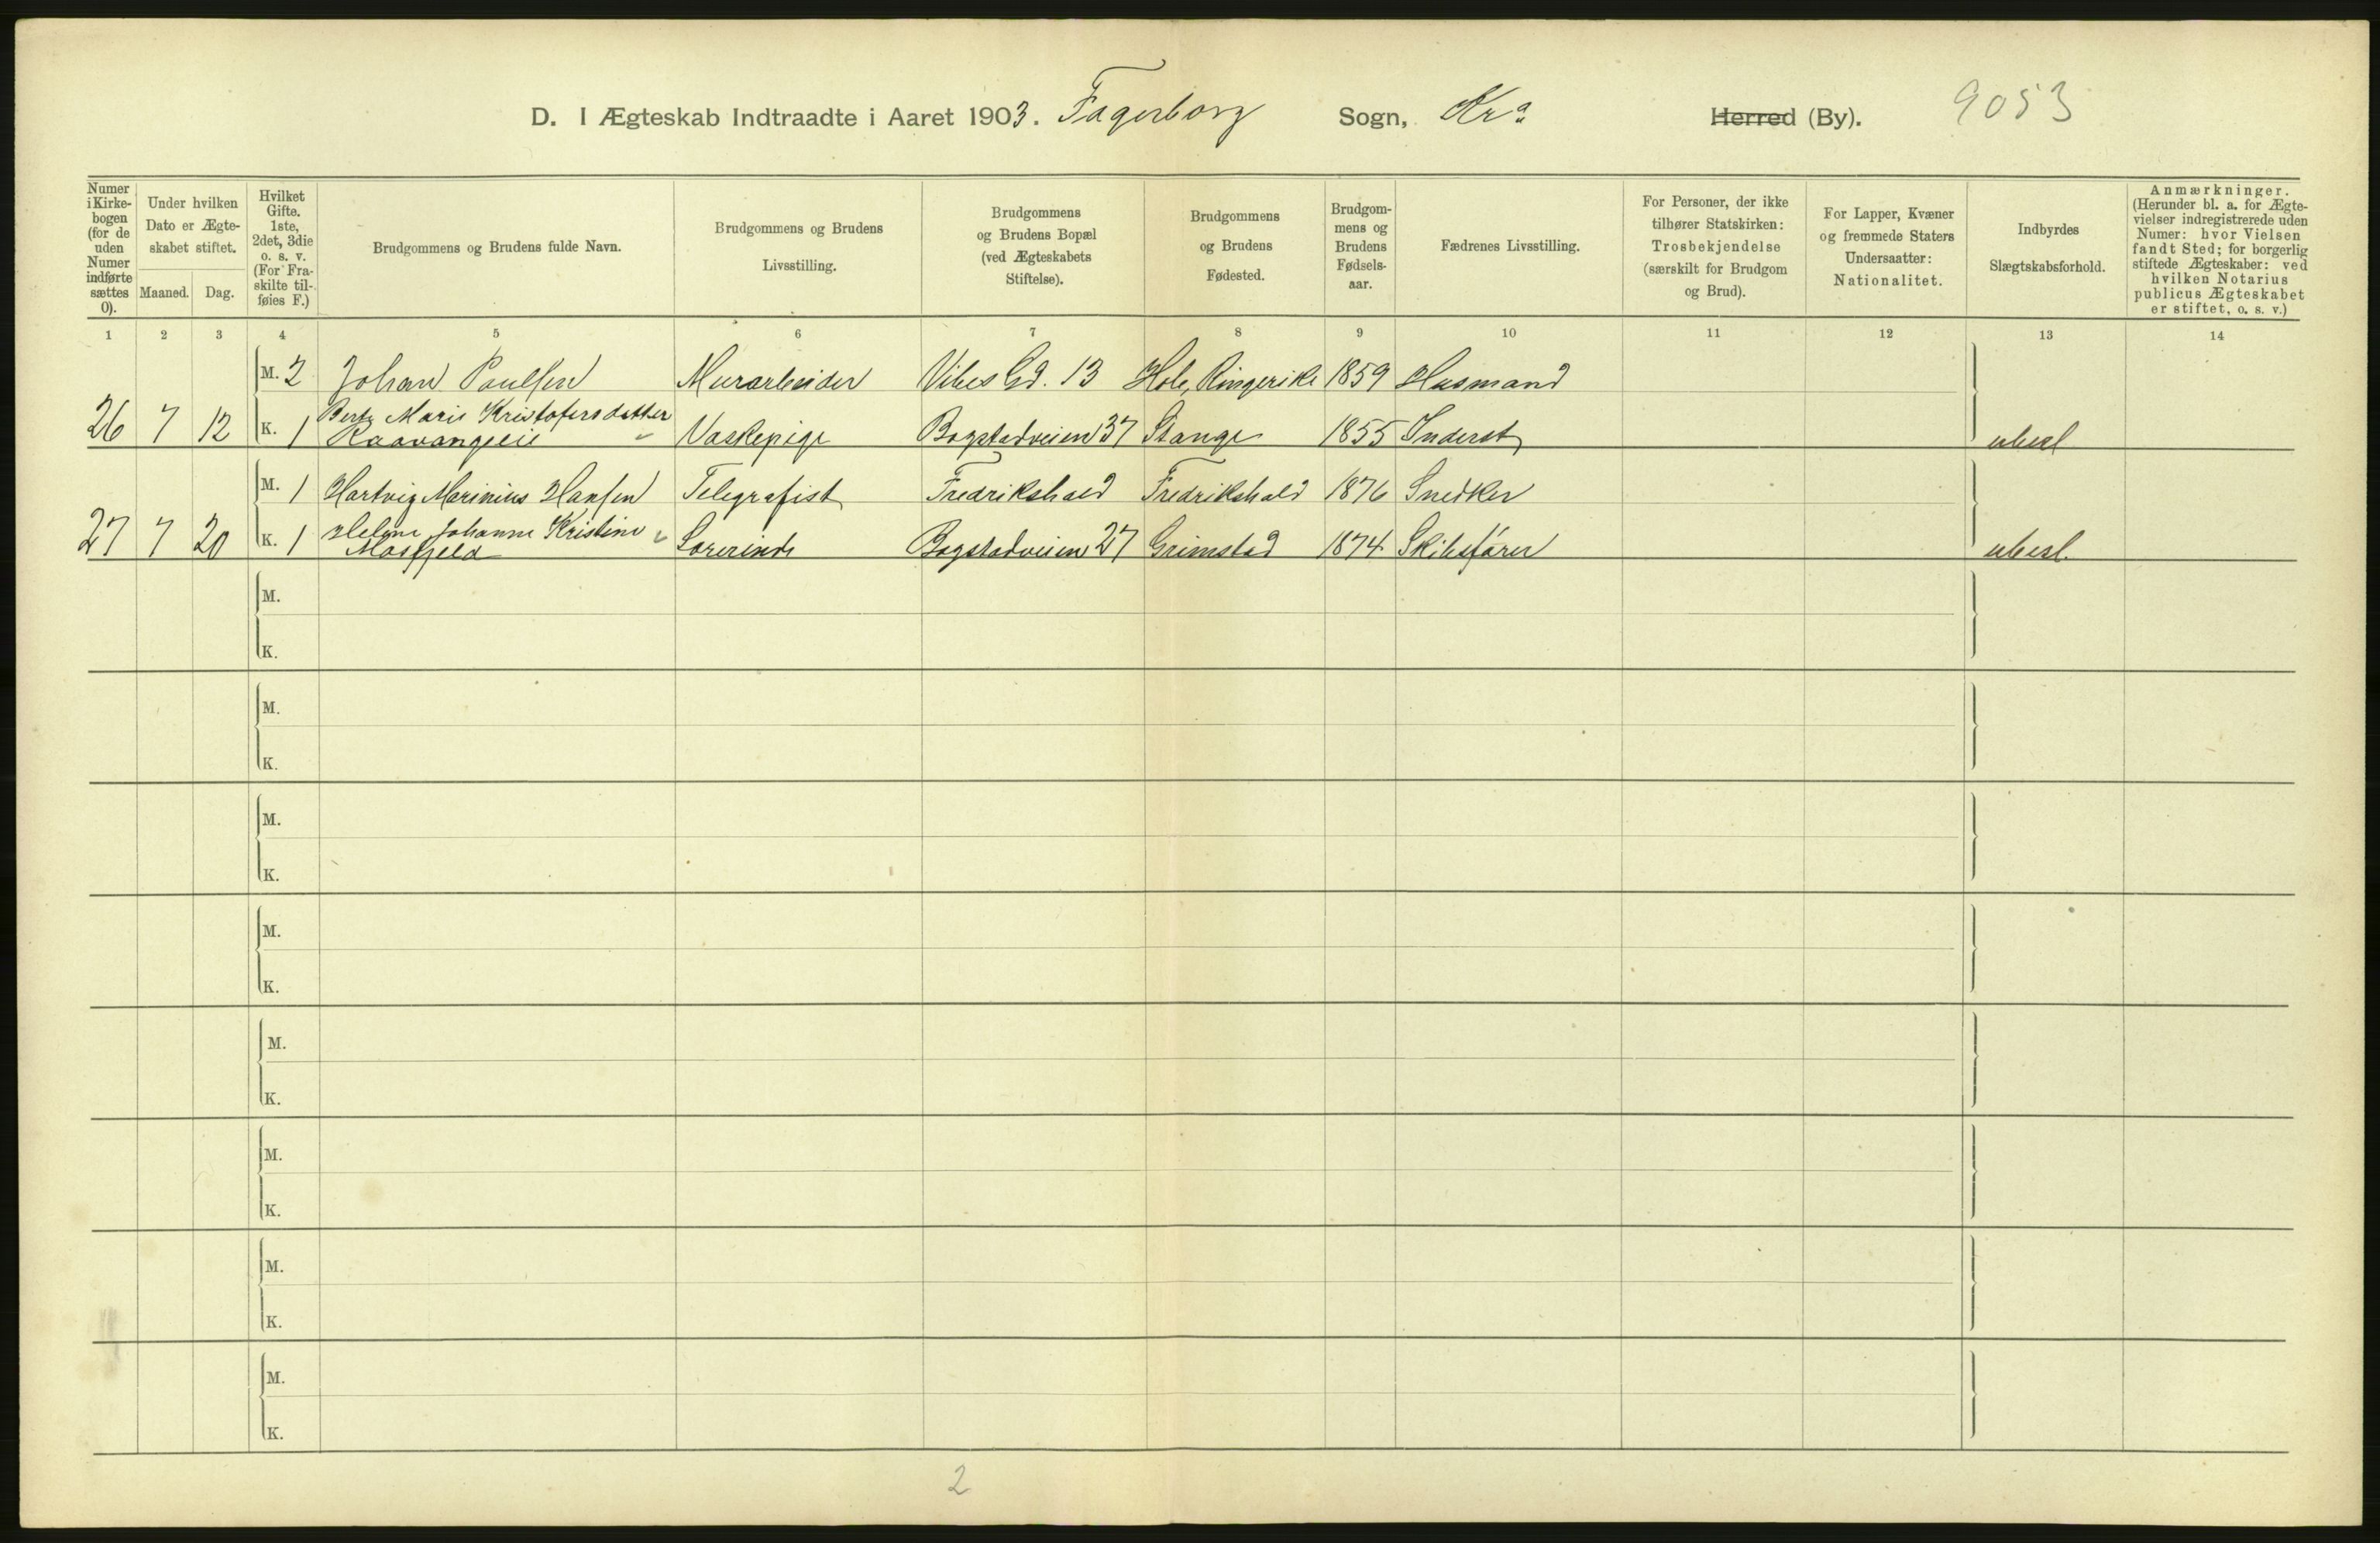 D. I Ægteskab Indtraadte i Aaret 1903. Fagerborg Sogn, Kra Herred (By). 9053
Numer i Kirke-bogen (for de uden Numer indførte sættes 0).
Under hvilken Dato er Ægte-skabet stiftet.
Maaned. Dag.
Hvilket Gifte. 1ste, 2det, 3die o. s. v. (For Fra-skilte til-føies F.)
Brudgommens og Brudens fulde Navn.
Brudgommens og Brudens Livsstilling.
Brudgommens og Brudens Bopæl (ved Ægteskabets Stiftelse).
Brudgommens og Brudens Fødested.
Brudgom-mens og Brudens Fødsels-aar.
Fædrenes Livsstilling.
For Personer, der ikke tilhører Statskirken: Trosbekjendelse (særskilt for Brudgom og Brud).
For Lapper, Kvæner og fremmede Staters Undersaatter: Nationalitet.
Indbyrdes Slægtskabsforhold.
Anmærkninger. (Herunder bl. a. for Ægte-vielser indregistrerede uden Numer: hvor Vielsen fandt Sted; for borgerlig stiftede Ægteskaber: ved hvilken Notarius publicus Ægteskabet er stiftet, o. s. v.)
1 2 3 4 5 6 7 8 9 10 11 12 13 14
M. 2 Johan Paulsen Murarbeider Vibes Gd. 13 Hole, Ringerike 1859 Husmand
Marie Kristofersdatter
26 7 12 K. 1 Vaskepige Bogstadveien 37 Stange 1855 Inderst ubesl
M. 1 Hartvig Marinius Hansen Telegrafist Fredrikshald Fredrikshald 1876 Snedker
Helene Johanne Kristine
27 7 20 K. 1 Mosfjeld Lærerinde Bogstadveien 27 Grimstad 1874 Skibsfører ubesl.
M.
K.
M.
K.
M.
K.
M.
K.
M.
K.
M.
K.
M.
K.
M.
K.
2